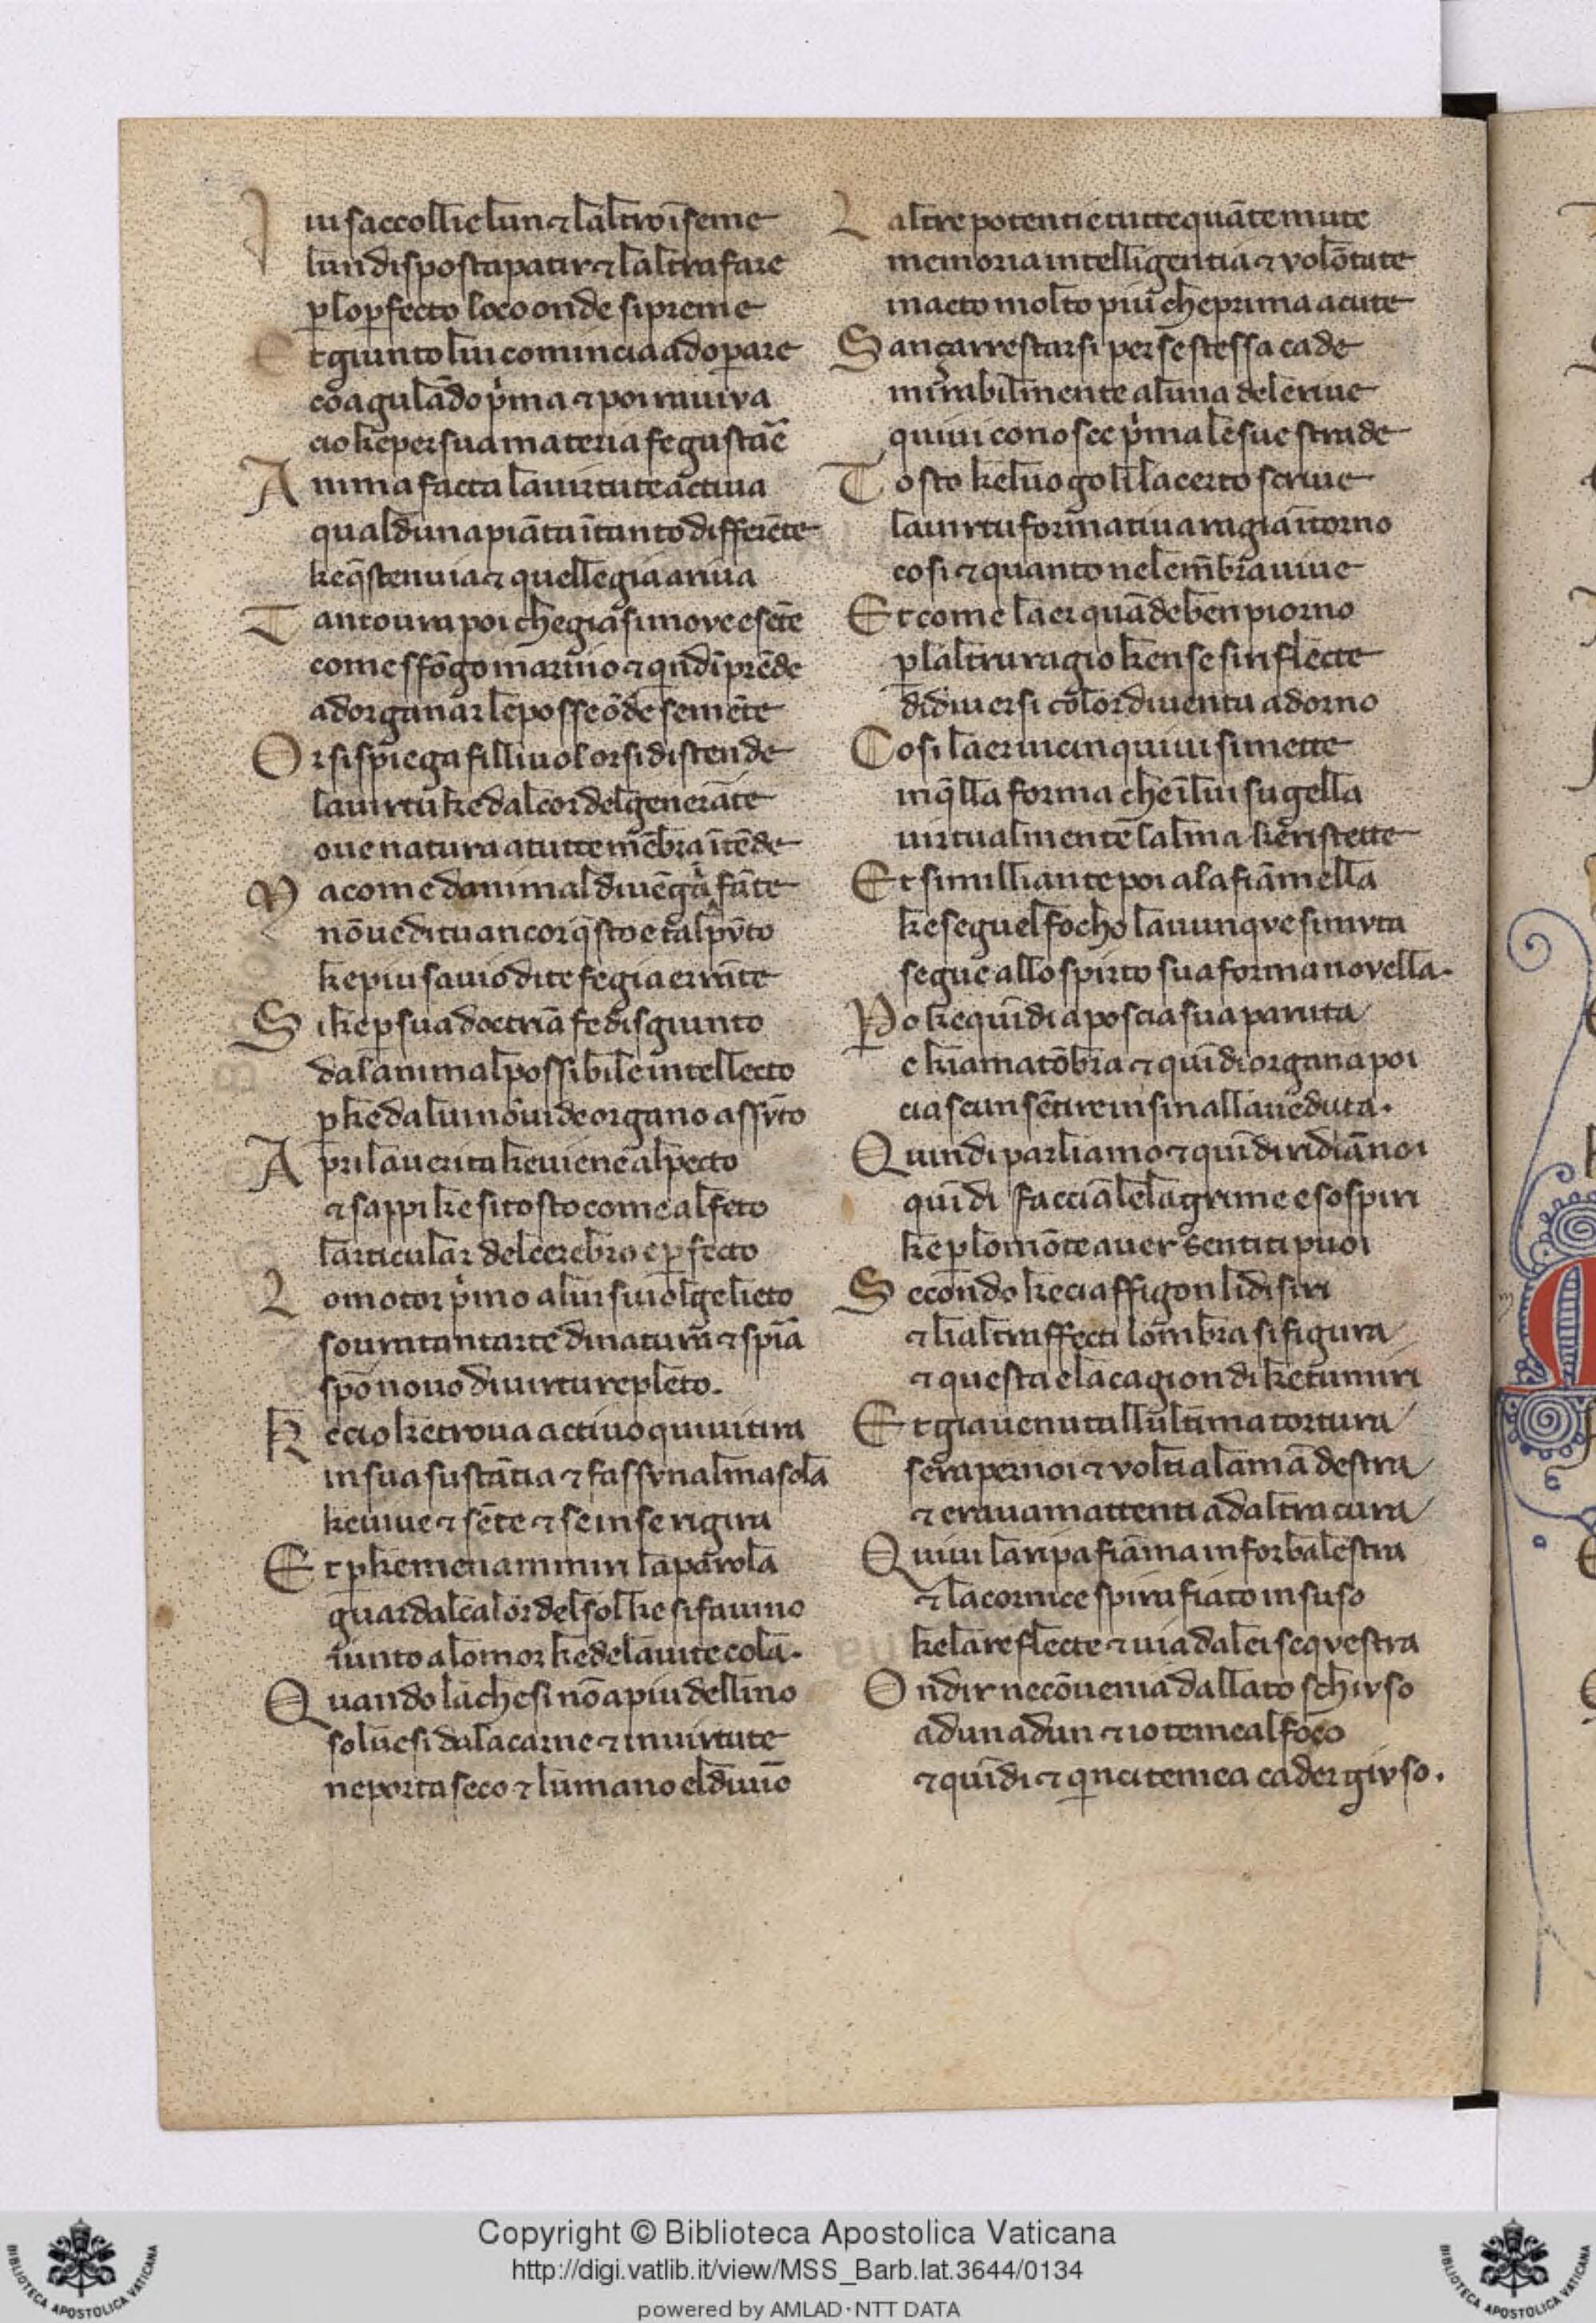 I ui saccollie lun ⁊ laltro īseme
lun disposta patir ⁊ laltra fare
ꝑ lo ꝑfecto loco onde si preme
E t giunto lui comincia ad oꝑare
coagulādo pͥma ⁊ poi rauiva
cio ke per sua materia fe gustāē
A nima facta la uirtute actiua
qual duna piāta ī tanto differēte
ke q̄ste n uia ⁊ quelle gia ariua
T anto ura poi che gia si move e sēte
come sfōgo marino ⁊ qͥndi prēde
ad organar le posse ōde semēte
O r si spiega filliuol or si distende
la uirtu ke dal cor del generāte
oue natura a tutte mēbra ītēde
M a come danimal diuēga fāte
nō uedi tu ancor q̄sto e tal pūto
ke piu sauio di te fe gia errāte
S i ke ꝑ sua doctrīa fe disgiunto
dal anima l possibile intellecto
ꝑ ke da lui nō uide organo assūto
A pri la uerita ke uiene al pecto
⁊ sappi ke si tosto come al feto
larticular del cerebro e ꝑfecto
L o motor pͥmo a lui si uolge lieto
soura tantarte di natura ⁊ spira
spō novo di uirtu repleto.
K e cio ke trova actiuo quiui tira
in sua sustātia ⁊ fassi vnalma sola
ke uiue ⁊ sēte ⁊ se in se rigira
E t ꝑ ke men ammiri la parola
guardal calor del sol ke si fa uino
iunto a lomor ke de la uite cola.
Q uando lachesi nō a piu del lino
solue si da la carne ⁊ in uirtute
ne porta seco ⁊ lumano el diuīo
L altre potentie tutte quāte mute
memoria intelligentia ⁊ volōtate
in acto molto piu che prima acute
S ança rrestarsi per se stessa cade
mirabilmente a luna de le riue
quiui conosce pͥma le sue strade
T osto ke luogo li la certo scriue
la uirtu formatiua ragia ītorno
cosi ⁊ quanto ne le mēbra uiue
E t come laer quāde ben piorno
ꝑ laltrui ragio ke n se si rinflecte
di diuersi color diuenta adorno
C osi laer uicin quiui si mette
in q̄lla forma che ī lui sugella
uirtualmente lalma ke ristette
E t simillia nte poi a la fiāmella
ke seguel focho la uunqve si mvta
segue allo spirto sua forma novella.
P o ke quīdi a poscia sua paruta
e kiamatōbra ⁊ quīdi organa poi
ciascun sētire insin alla ueduta.
Q uindi parliamo ⁊ quīdi ridiā noi
quīdi facciā le lagrime e sospiri
ke ꝑ lo mōte auer sentiti puoi
S econdo ke ci affigon li disiri
⁊ li altri affecti lombra si figura
⁊ questa e la cagion di ke tu miri
E t gia uenuta llultima tortura
sera per noi ⁊ volti a la mā destra
⁊ erauam attenti ad altra cura
Q uiui la ripa fiāma in for balestra
⁊ la cornice spira fiato in suso
ke la reflecte ⁊ uia da lei seqvestra
O ndir ne cōuenia dal lato schivso
ad un ad un ⁊ io temea l foco
⁊ quīdi ⁊ qͥnci temea cader givso.
Copyright © Biblioteca Apostolica Vaticana
http://digi.vatlib.it/view/MSS_Barb.lat.3644/0134
powered by AMLAD·NTT DATA
BIBLIOTECA APOSTOLICA VATICANA
BIBLIOTECA APOSTOLICA VATICANA